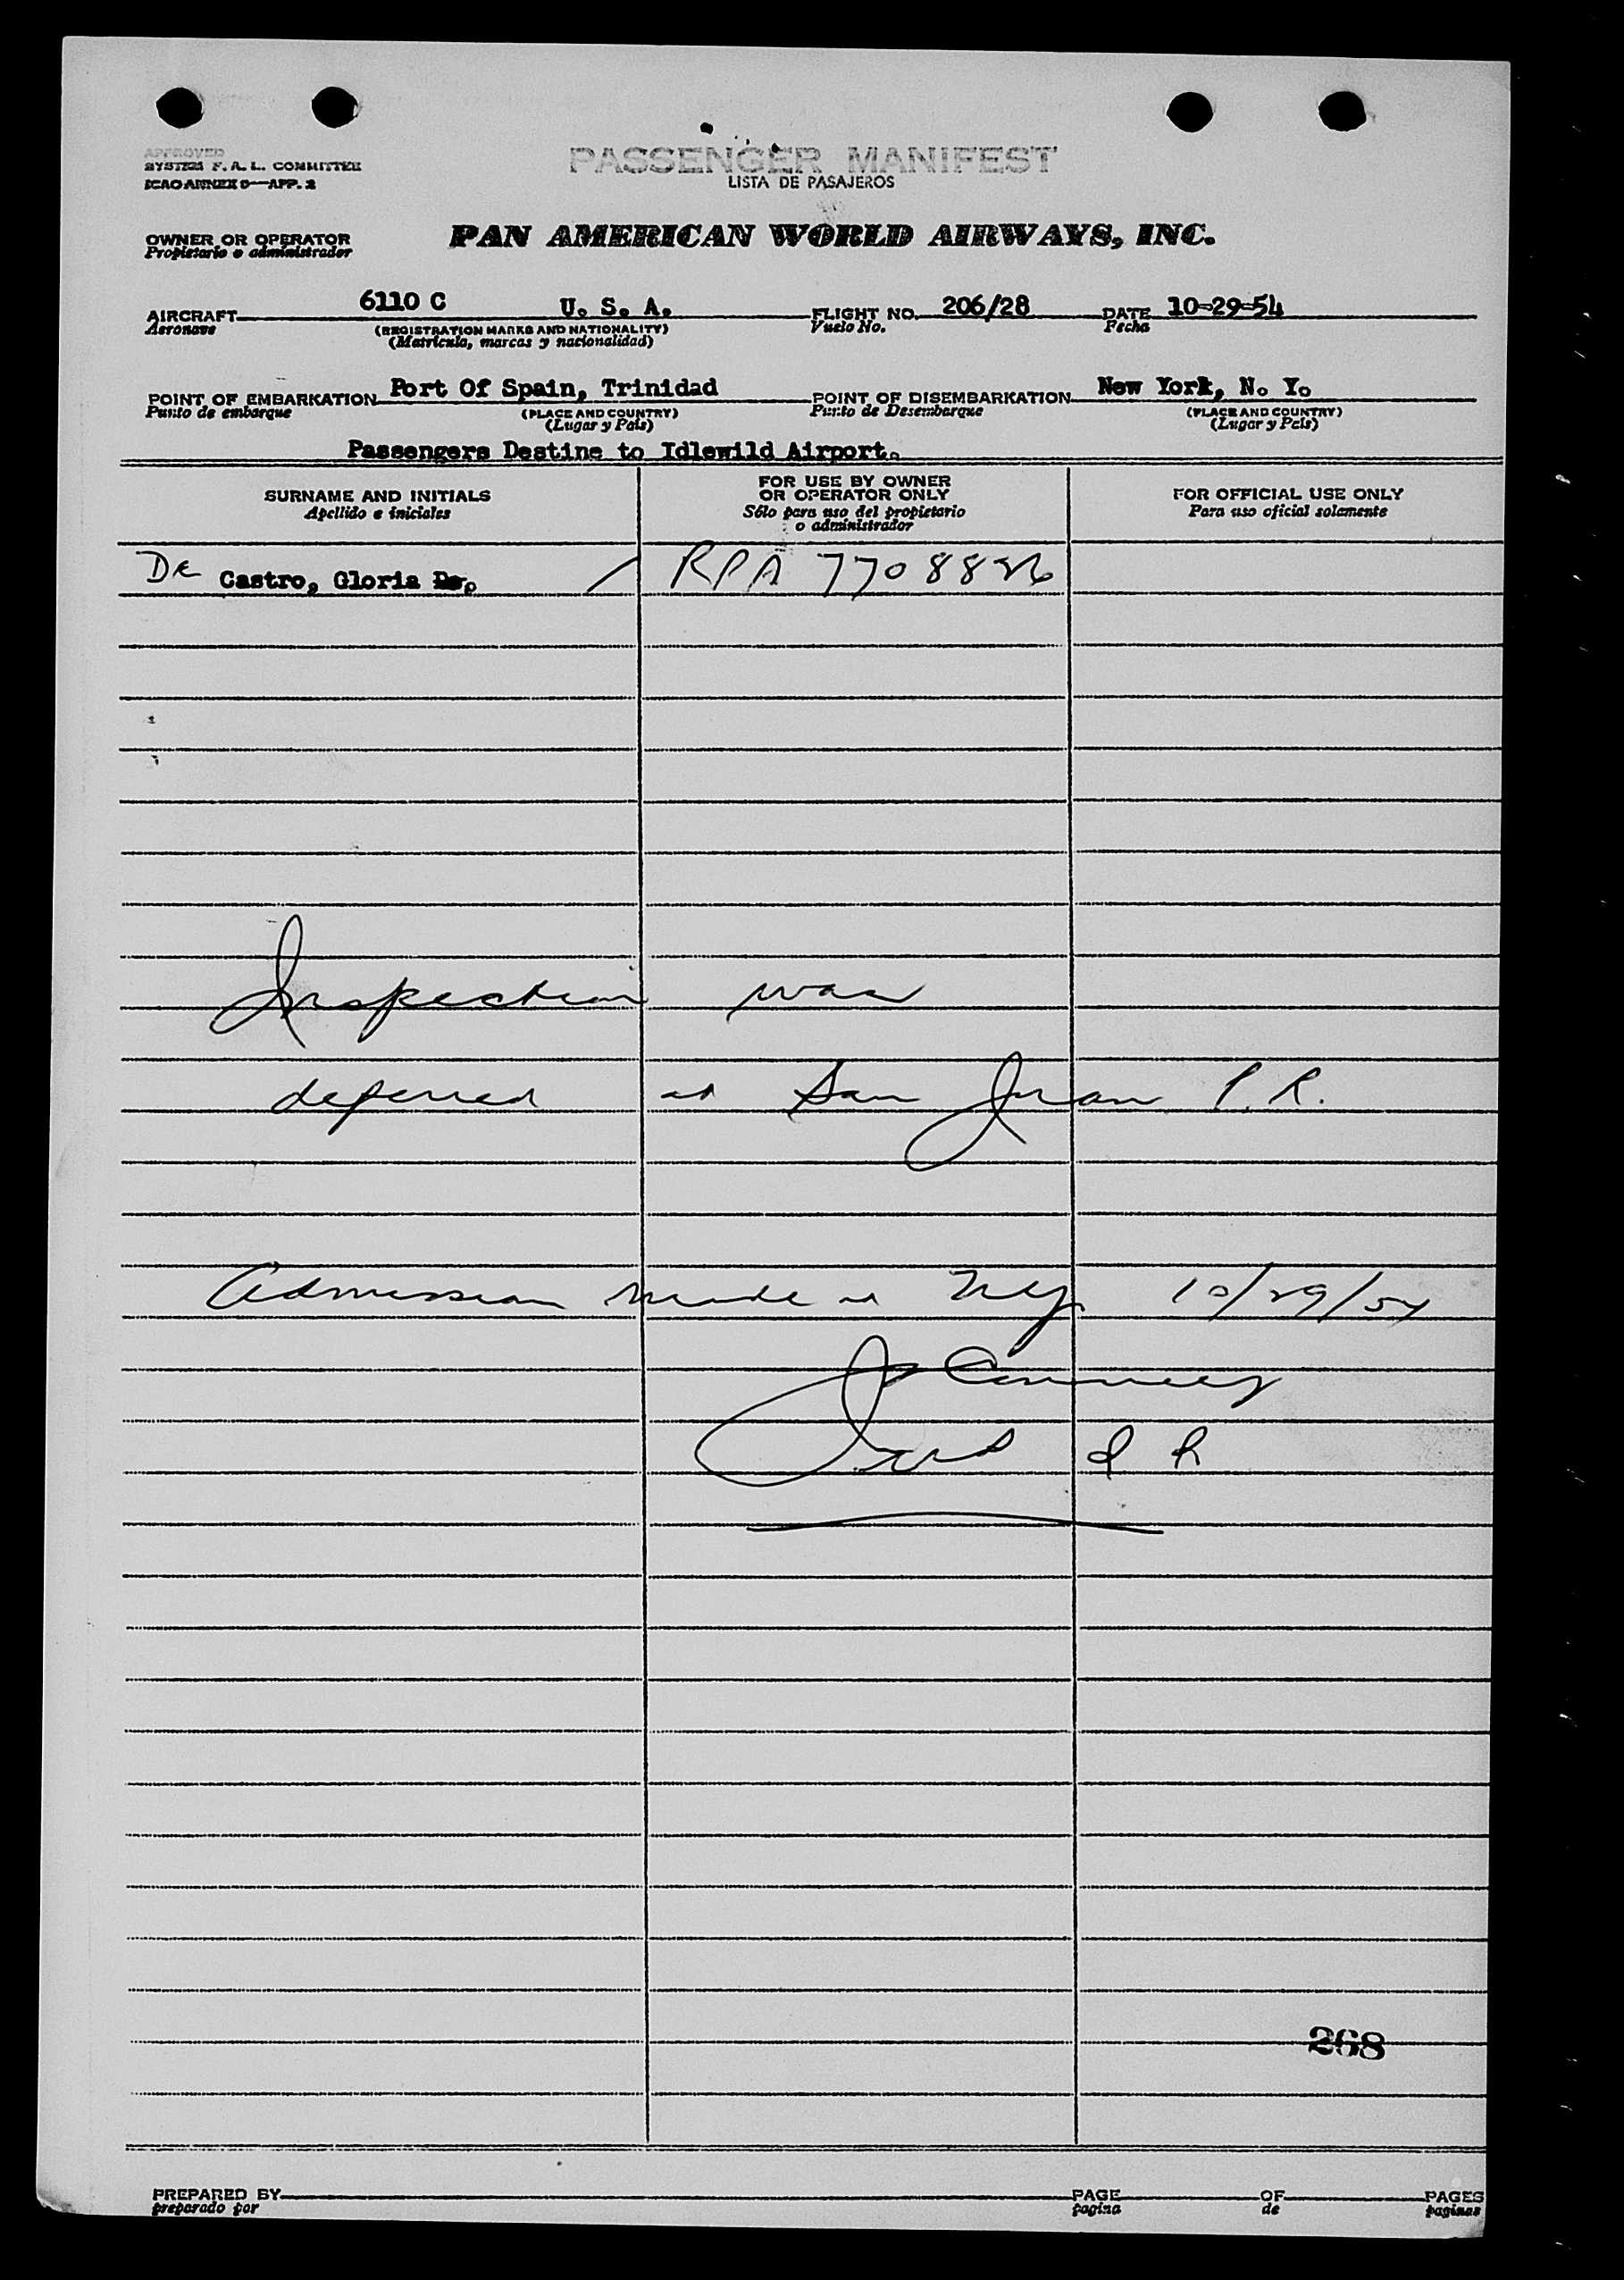 APPROVED
SYSTEM F. A. L. COMMITTEE
ICAO ANNEX 9—APP. 2
PASSENGER MANIFEST
LISTA DE PASAJEROS
OWNER OR OPERATOR
Propietario o administrador
PAN AMERICAN WORLD AIRWAYS, INC.
AIRCRAFT 6110 C U. S. A. FLIGHT NO. 206/28 DATE 10-29-54
Aeronave (REGISTRATION MARKS AND NATIONALITY) Vuelo No. Fecha
(Matricula, marcas y nacionalidad)
POINT OF EMBARKATION Port Of Spain, Trinidad POINT OF DISEMBARKATION New York, N. Y.
Punto de embarque (PLACE AND COUNTRY) Punto de Desembarque (PLACE AND COUNTRY)
(Lugar y País) (Lugar y País)
Passengers Destine to Idlewild Airport.
SURNAME AND INITIALS
Apellido e iniciales
FOR USE BY OWNER
OR OPERATOR ONLY
Sólo para uso del propietario
o administrador
FOR OFFICIAL USE ONLY
Para uso oficial solamente
De Castro, Gloria De. / RPA 7708826
Inspection was
deferred at San Juan P.R.
Admission made at NY 10/29/54
268
PREPARED BY PAGE OF PAGES
preparado por pagina de paginas